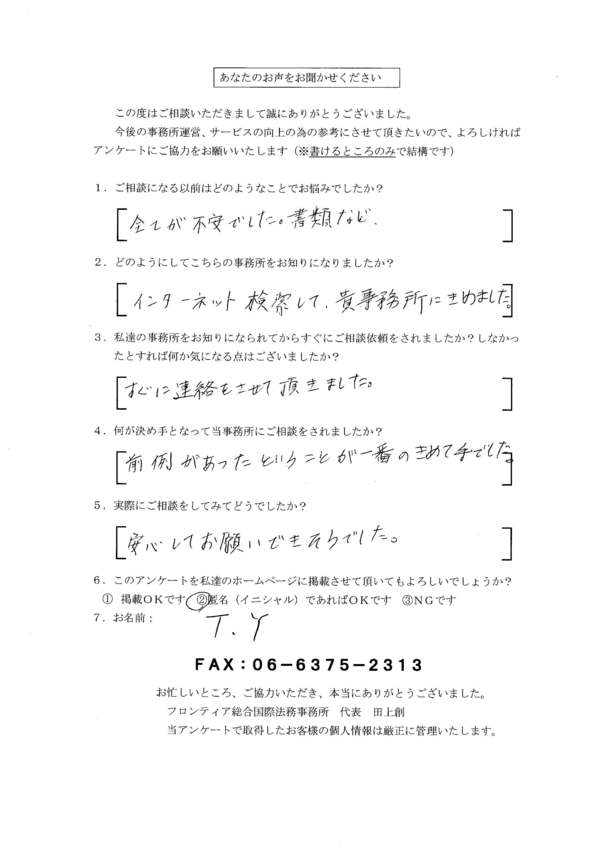 あなたのお声をお聞かせください
この度はご相談いただきまして誠にありがとうございました。
今後の事務所運営、サービスの向上の為の参考にさせて頂きたいので、よろしければ
アンケートにご協力をお願いいたします（※書けるところのみで結構です）
１．ご相談になる以前はどのようなことでお悩みでしたか？
全てが不安でした。書類など、
２．どのようにしてこちらの事務所をお知りになりましたか？
インターネット検索して、貴事務所にきめました。
３．私達の事務所をお知りになられてからすぐにご相談依頼をされましたか？しなかっ
たとすれば何か気になる点はございましたか？
すぐに連絡をさせて頂きました。
４．何が決め手となって当事務所にご相談をされましたか？
前例があったということが一番のきめて手でした。
５．実際にご相談をしてみてどうでしたか？
安心してお願いできそうでした。
６．このアンケートを私達のホームページに掲載させて頂いてもよろしいでしょうか？
① 掲載ＯＫです ②匿名（イニシャル）であればＯＫです ③ＮＧです
７．お名前： T.Y
ＦＡＸ：０６－６３７５－２３１３
お忙しいところ、ご協力いただき、本当にありがとうございました。
フロンティア総合国際法務事務所 代表 田上創
当アンケートで取得したお客様の個人情報は厳正に管理いたします。